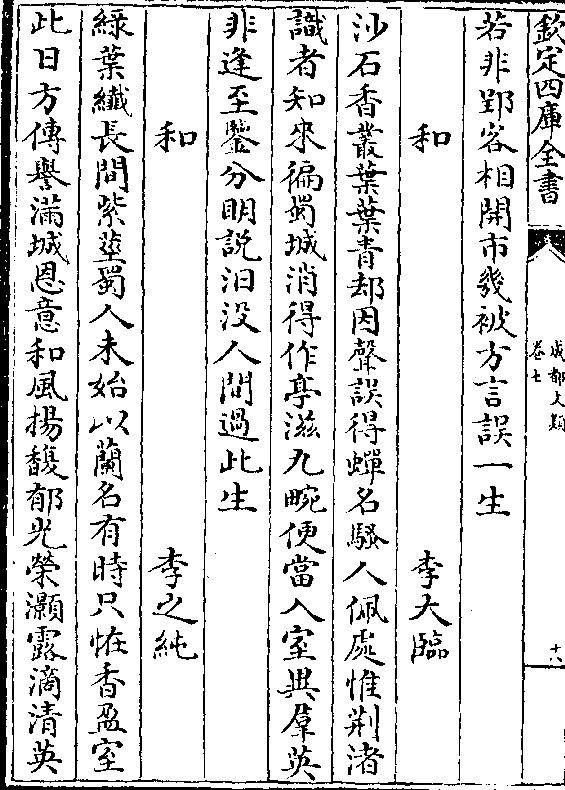 欽定四庫全書
成都文類
卷七
十八
若非郢客相開市幾被方言誤一生
和 李大臨
沙石香叢葉葉青却因聲誤得蟬名騷人佩處惟荆渚
識者知來徧蜀城消得作亭滋九畹便當入室與羣英
非逢至鑒分明說汨没人間過此生
和 李之純
緑葉纖長間紫莖蜀人未始以蘭名有時只恠香盈室
此日方傳譽滿城恩意和風揚馥郁光榮灝露滴清英